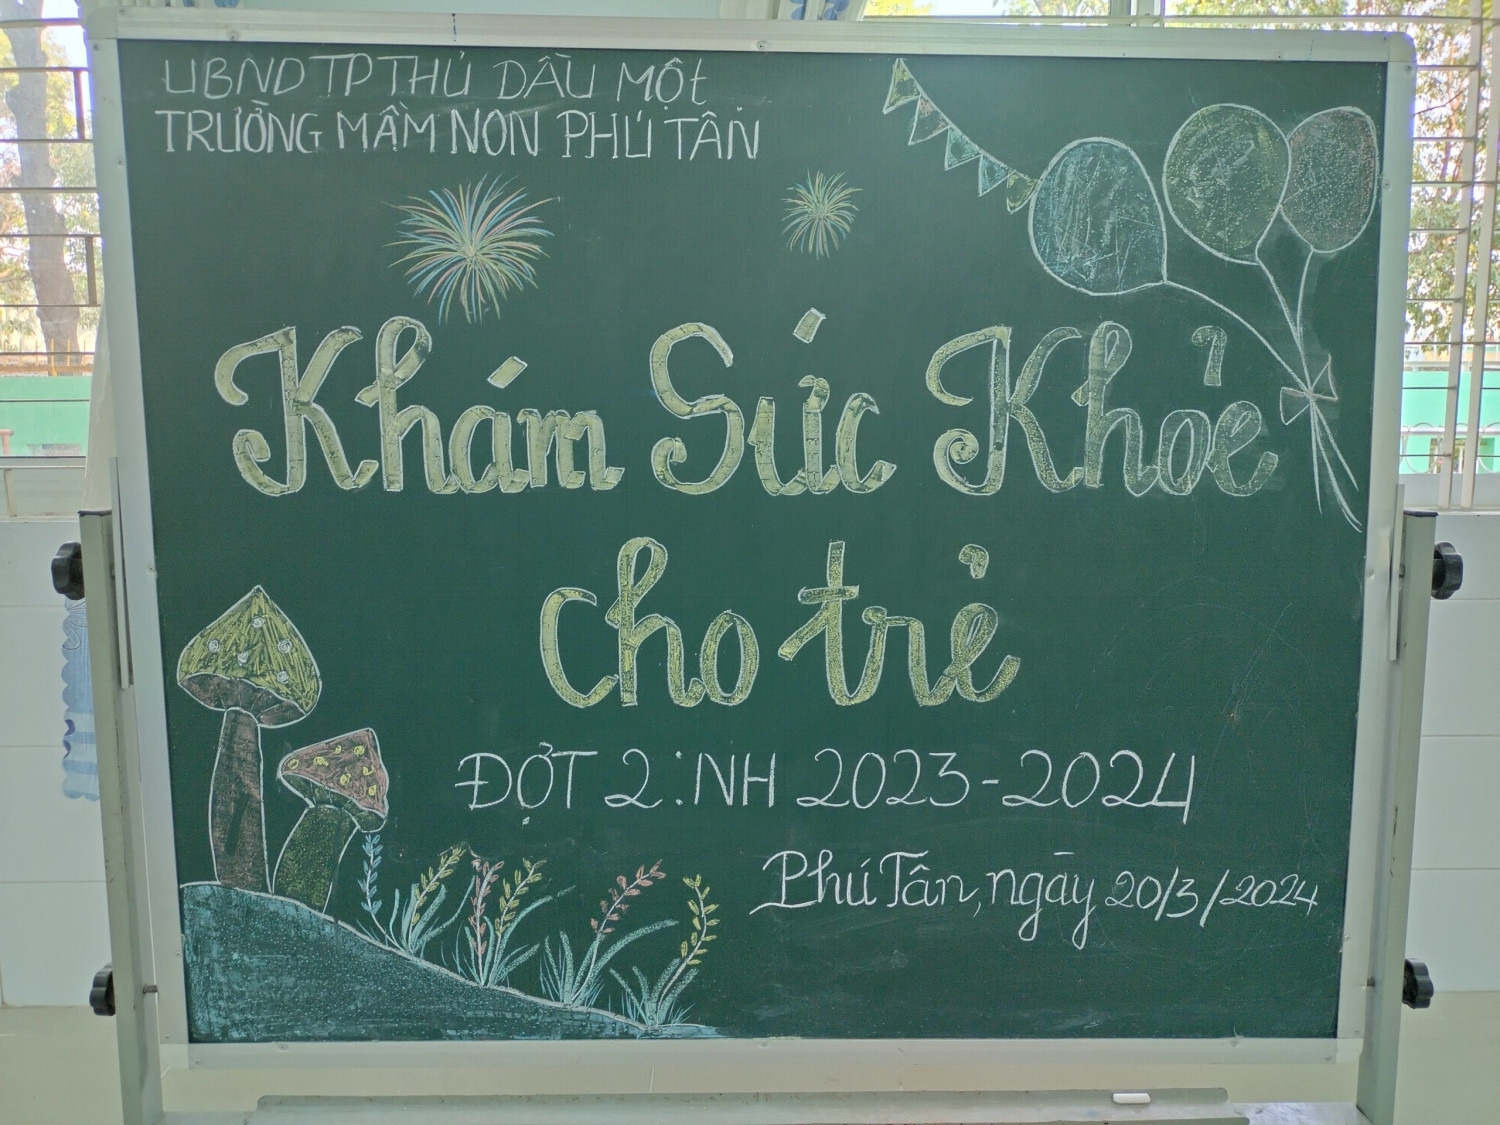 UBND TP THỦ DẦU MỘt
TRƯỜNG MẦM NON PHÚ TÂN
Khám Sức Khỏe
cho trẻ
ĐỢT 2: NH 2023-2024
Phú Tân, ngày 20/3/2024